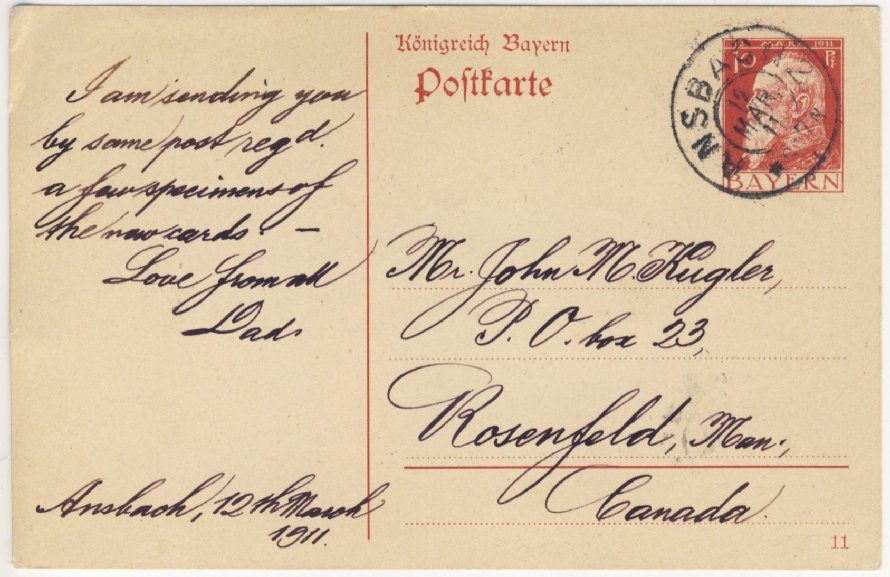 I am sending you
by same post regd.
a few specimens of
the new cards. —
Love from all
Dad.
Ansbach, 12th March
1911.
Königreich Bayern
Postkarte
12 MÄRZ 1911
10 Pf
BAYERN
ANSBACH 2
12
MÄR
11
Mr. John M. Kugler,
P. O. box 23,
Rosenfeld, Man.,
Canada
11